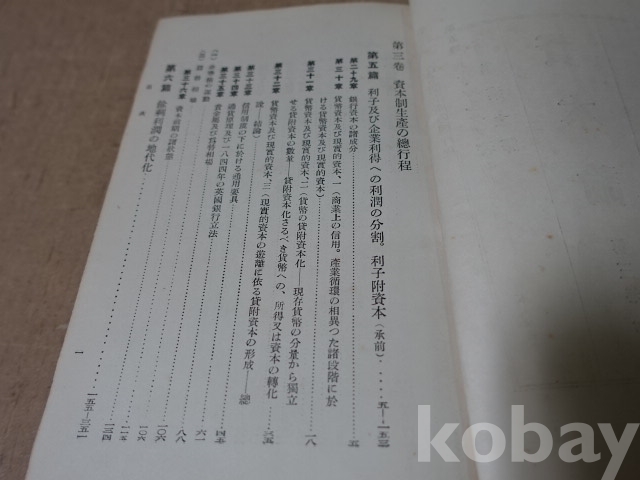 第三卷　資本制生產の總行程
第五篇　利子及び企業利得への利潤の分割。利子附資本（承前）……五—一五三
第二十九章　銀行資本の諸成分……五
第三十章　貨幣資本及び現實的資本、一（商業上の信用。產業循環の相異つた諸段階に於
ける貨幣資本及び現實的資本）……一八
第三十一章　貨幣資本及び現實的資本、二（貨幣の貸附資本化——現存貨幣の分量から獨立
せる貸附資本の數量——貸附資本化さるべき貨幣への、所得又は資本の轉化……三五
第三十二章　貨幣資本及び現實的資本、三（現實的資本の遊離に依る貸附資本の形成——總
說——結論）……四七
第三十三章　信用制度の下に於ける通用要具……六一
第三十四章　通貨原理及び一八四四年の英國銀行立法……八八
第三十五章　貴金屬及び爲替相場……一〇六
（一）金準備の運動……一〇六
（二）爲替相場……一一五
第三十六章　資本前期の諸狀態……一三四
第六篇　餘剩利潤の地代化……一五五—三五一
目次
1
kobay